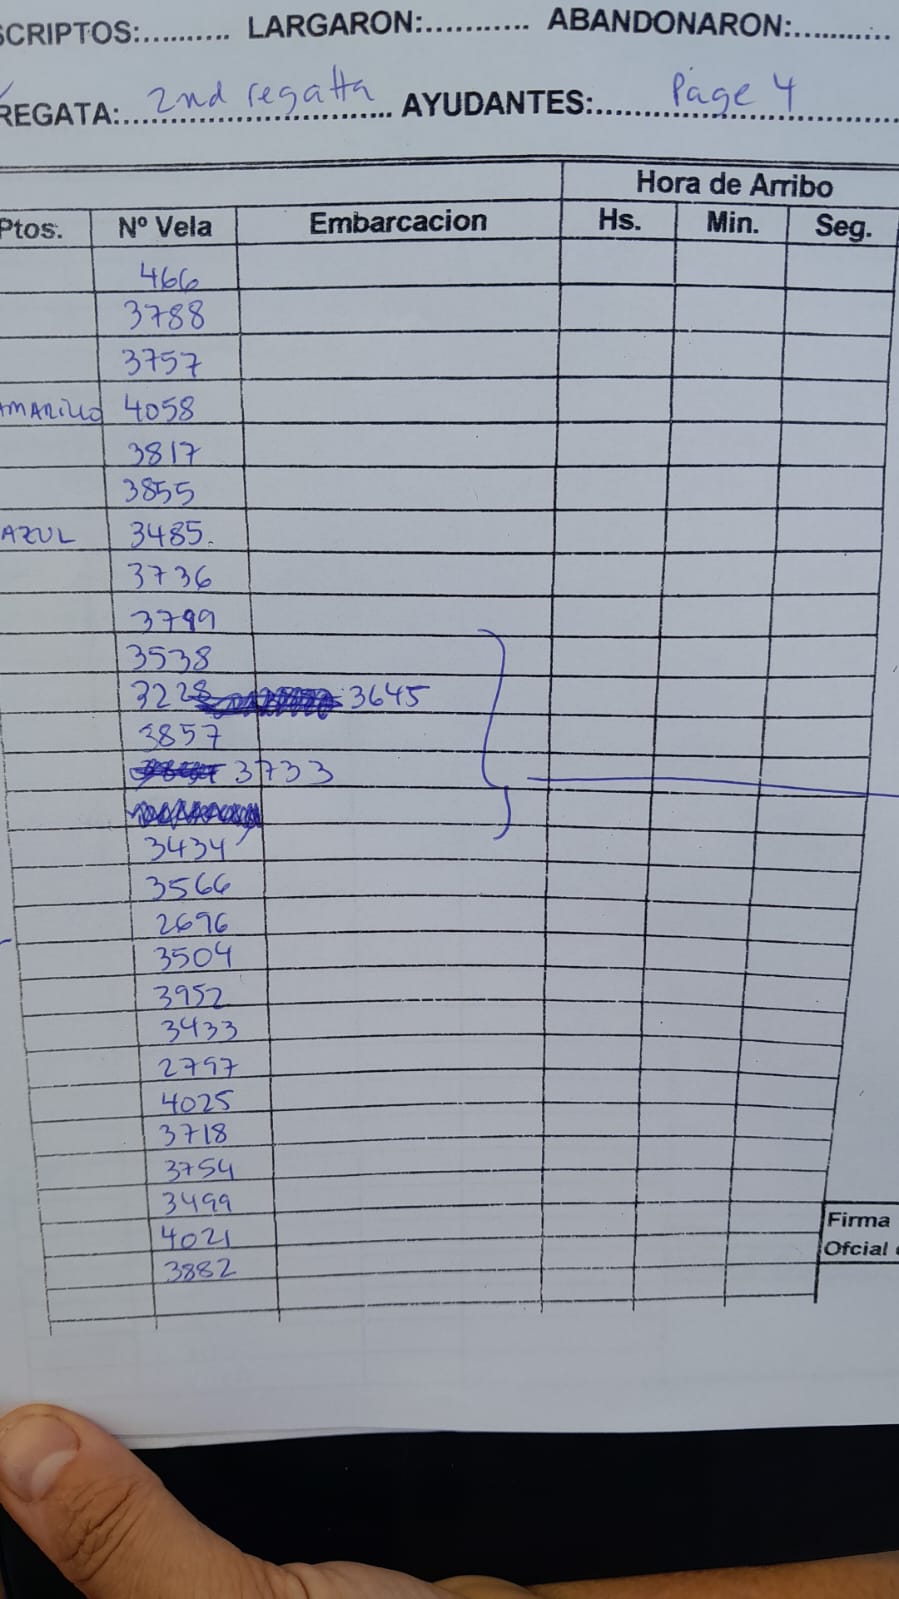 SCRIPTOS:.......... LARGARON:........... ABANDONARON:..........
REGATA: 2nd regatta AYUDANTES: Page 4
Hora de Arribo
Ptos. Nº Vela Embarcacion Hs. Min. Seg.
466
3788
3757
AMARILLO 4058
3817
3855
AZUL 3485.
3736
3799
3538
3228 3645
3857
3733
3434
3566
2696
3504
3952
3433
2797
4025
3718
3754
3499
4021
3882
Firma
Ofcial